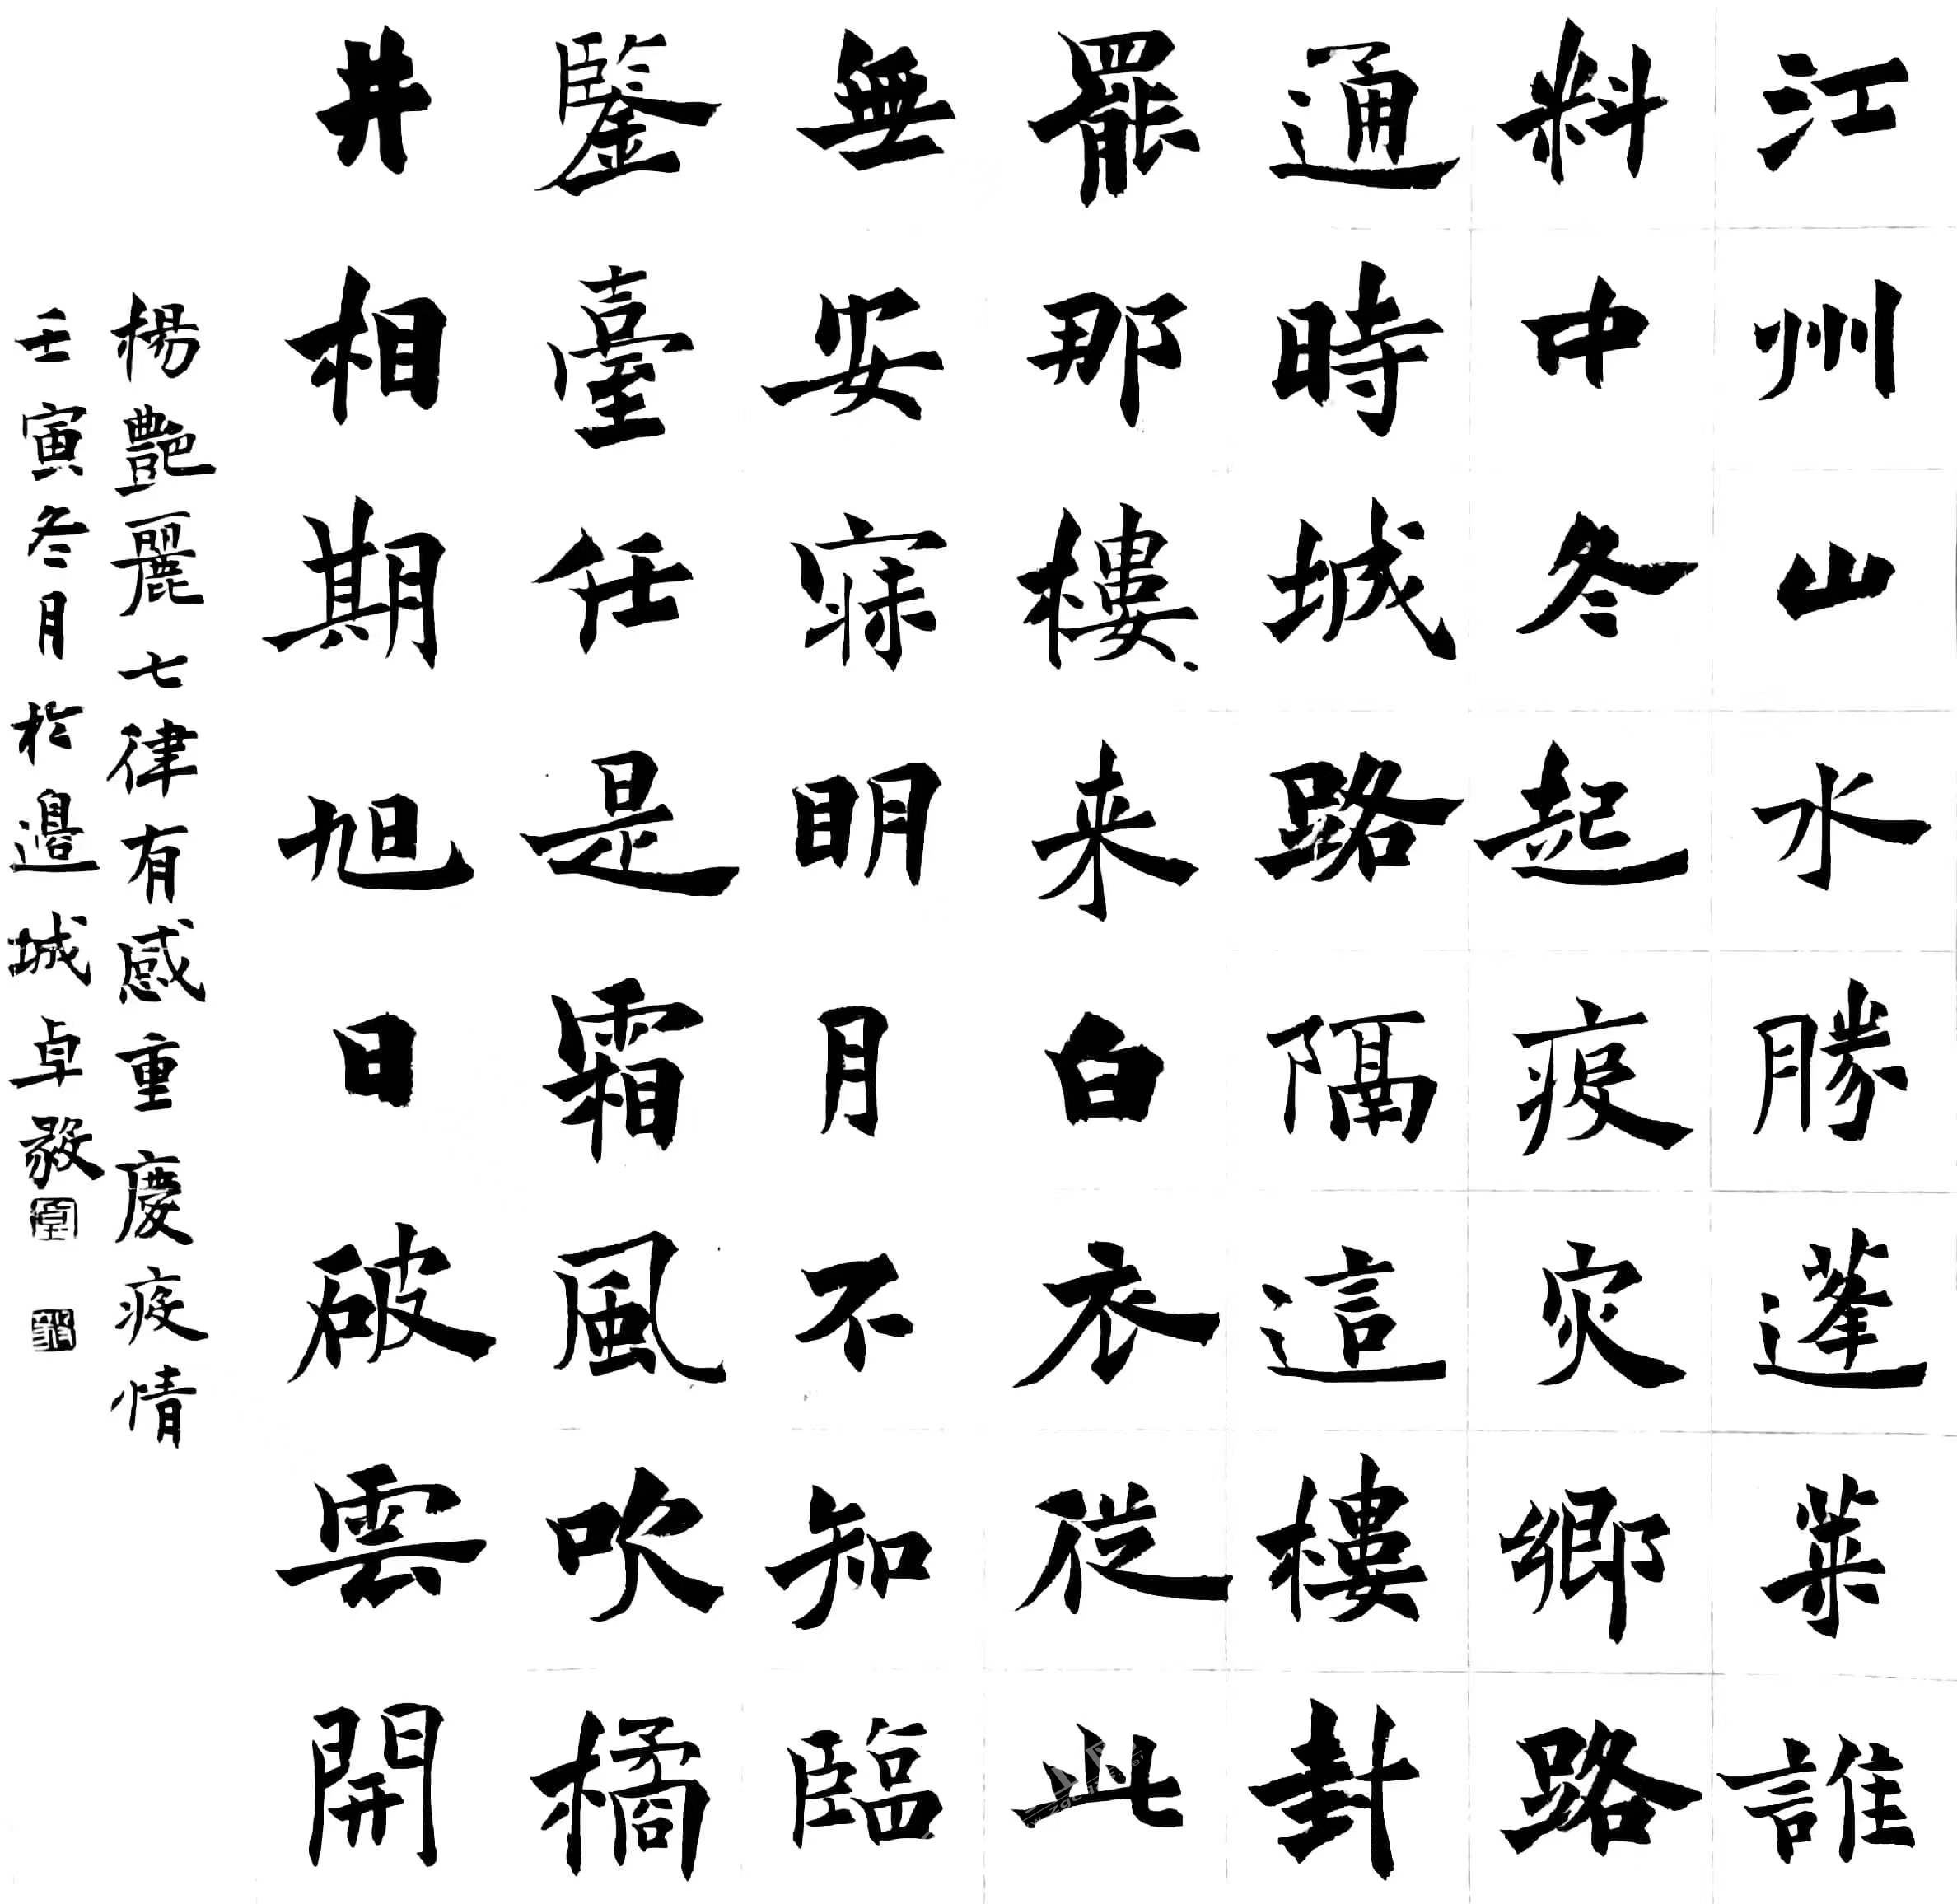 江州山水勝蓬莱誰
料中冬起疫灾鄉路
通時城路隔這樓封
罷那樓来白衣從此
無安寐明月不知臨
鑒臺任是霜風吹橘
井相期旭日破雲開
楊艷麗七律有感重慶疫情
壬寅冬月於邊城卓毅